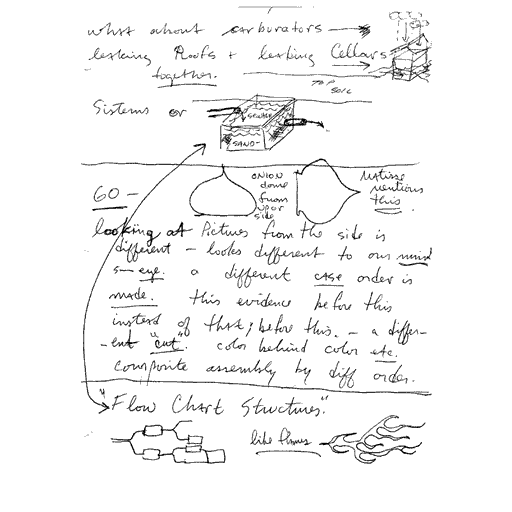 what about carburators
leaking Roofs + leaking Cellars
together.
TOP
SOIL
Sistems or
SEWAGE
SAND
60 -
ONION
dome
from
upor
side
Matisse
mentions
this.
looking at Pictures from the side is
different - looks different to our mind
s- eye. a different case order is
made. this evidence before this
instead of that; before this. - a differ-
-ent "cut". color behind color etc.
composite assembly by diff order.
"Flow Chart Structures".
like flames